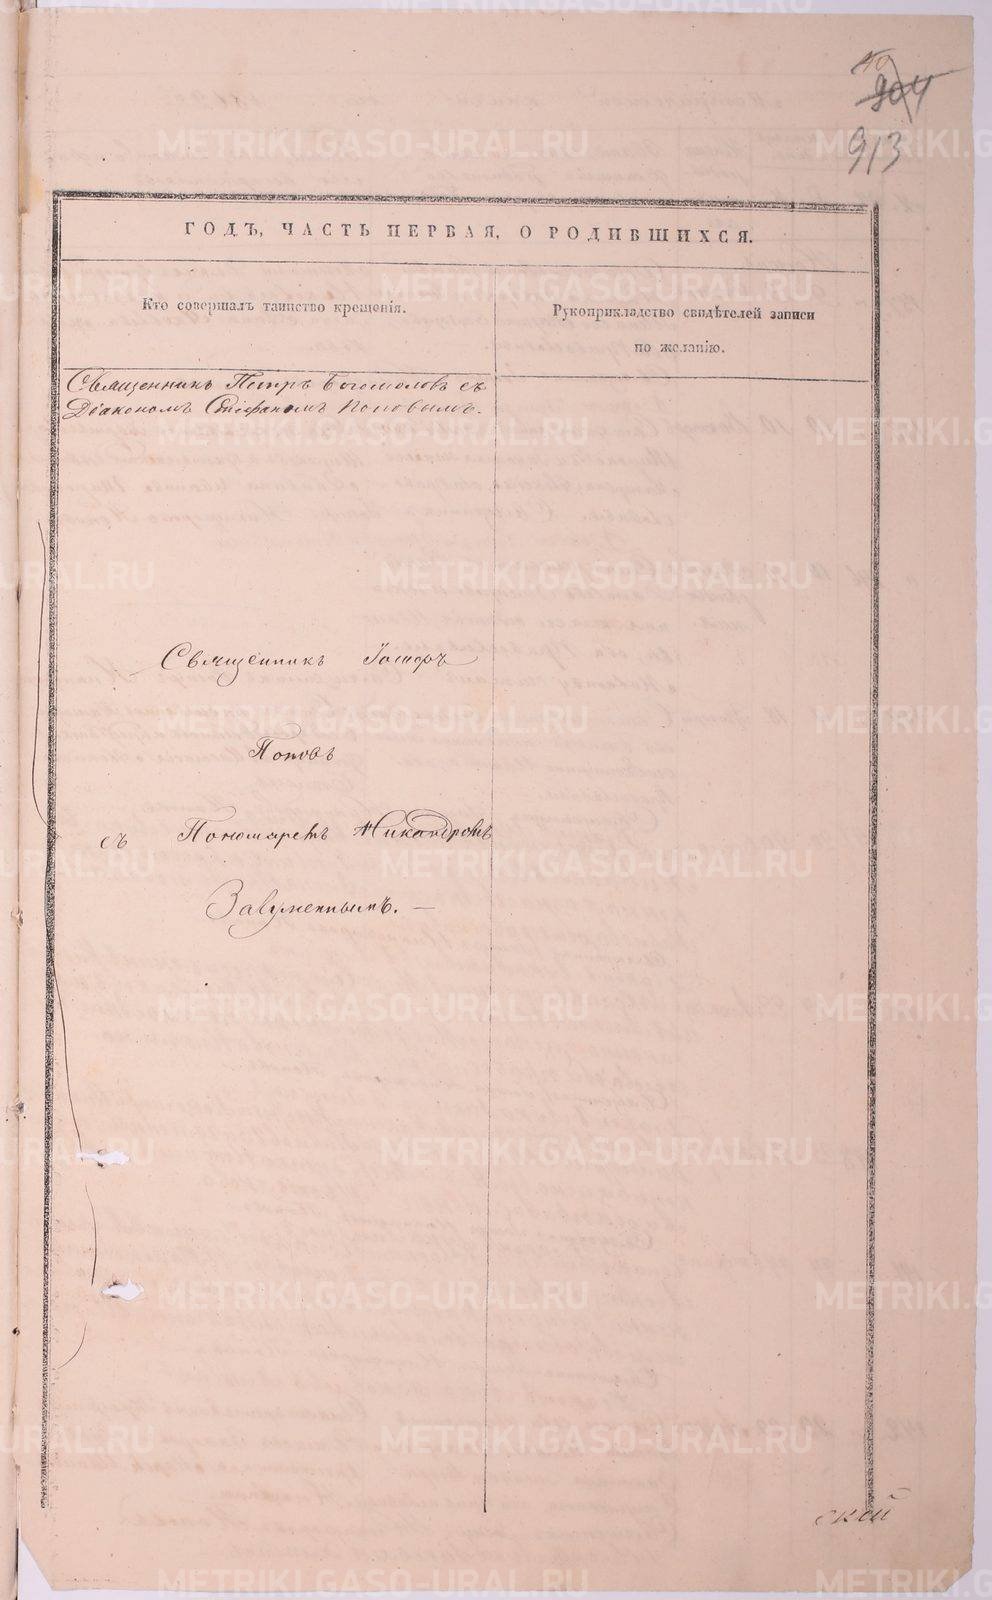 904
913
ГОДЪ, ЧАСТЬ ПЕРВАЯ, О РОДИВШИХСЯ.
Кто совершалъ таинство крещенія.
Рукоприкладство свидѣтелей записи
по желанію.
Священникъ Петръ Богомоловъ съ
Діакономъ Стефаномъ Поповымъ.
Священникъ Іосифъ
Поповъ
съ Пономаремъ Никандромъ
Завуженнымъ. —
ской
METRIKI.GASO-URAL.RU